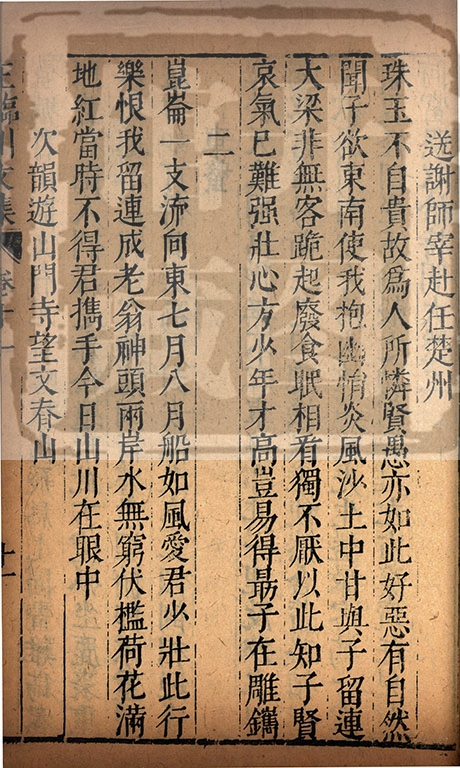 送謝師宰赴任楚州
珠玉不自貴故爲人所憐賢愚亦如此好惡有自然
聞子欲東南使我抱幽悁炎風沙土中甘與子留連
大梁非無客跪起廢食眠相看獨不厭以此知子賢
哀氣已難强壯心方少年才高豈易得最子在雕鐫
二
崑崙一支流向東七月八月船如風愛君少壯此行
樂恨我留連成老翁神頭兩岸水無窮伏檻荷花滿
地紅當時不得君攜手今日山川在眼中
次韻遊山門寺望文春山
王臨川文集 卷十一 十一